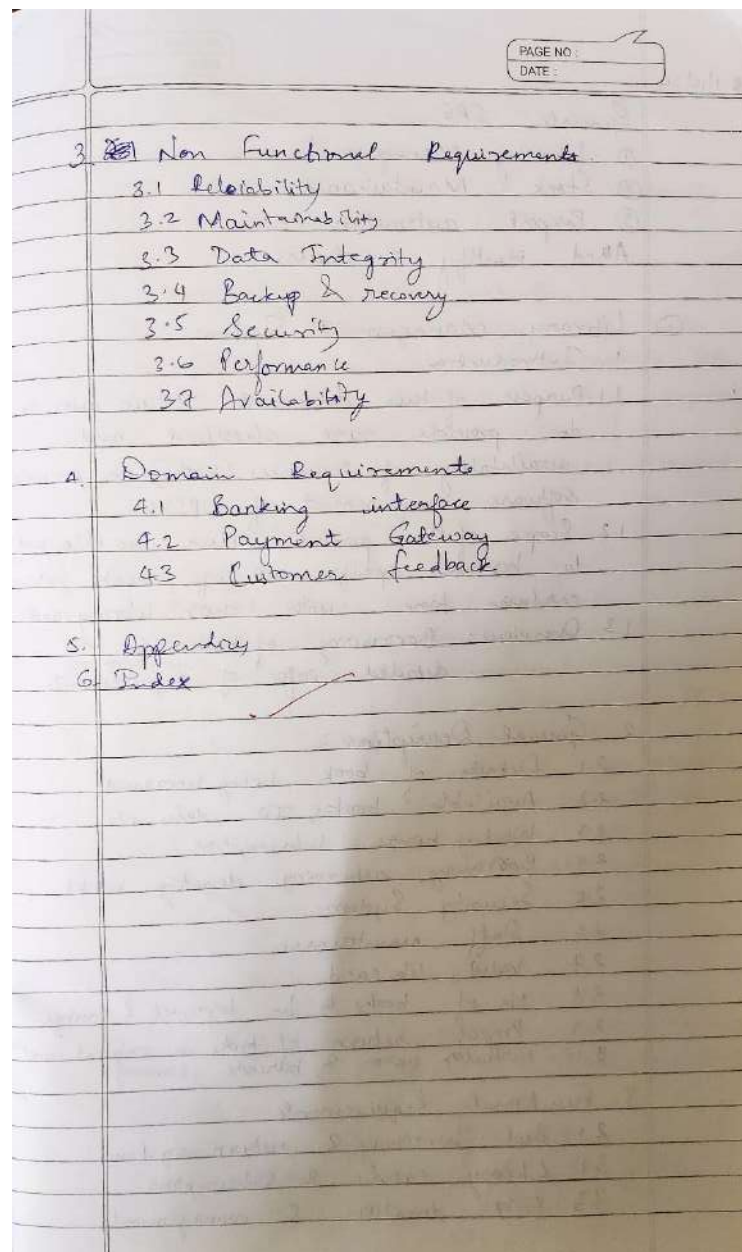 PAGE NO :
DATE :
3 Non Functional Requirements
3.1 Reloiability
3.2 Maintainability
3.3 Data Integrity
3.4 Backup & recovery
3.5 Security
3.6 Performance
37 Availability
4. Domain Requirements
4.1 Banking interface
4.2 Payment Gateway
43 Customer feedback
5. Appendary
6 Index